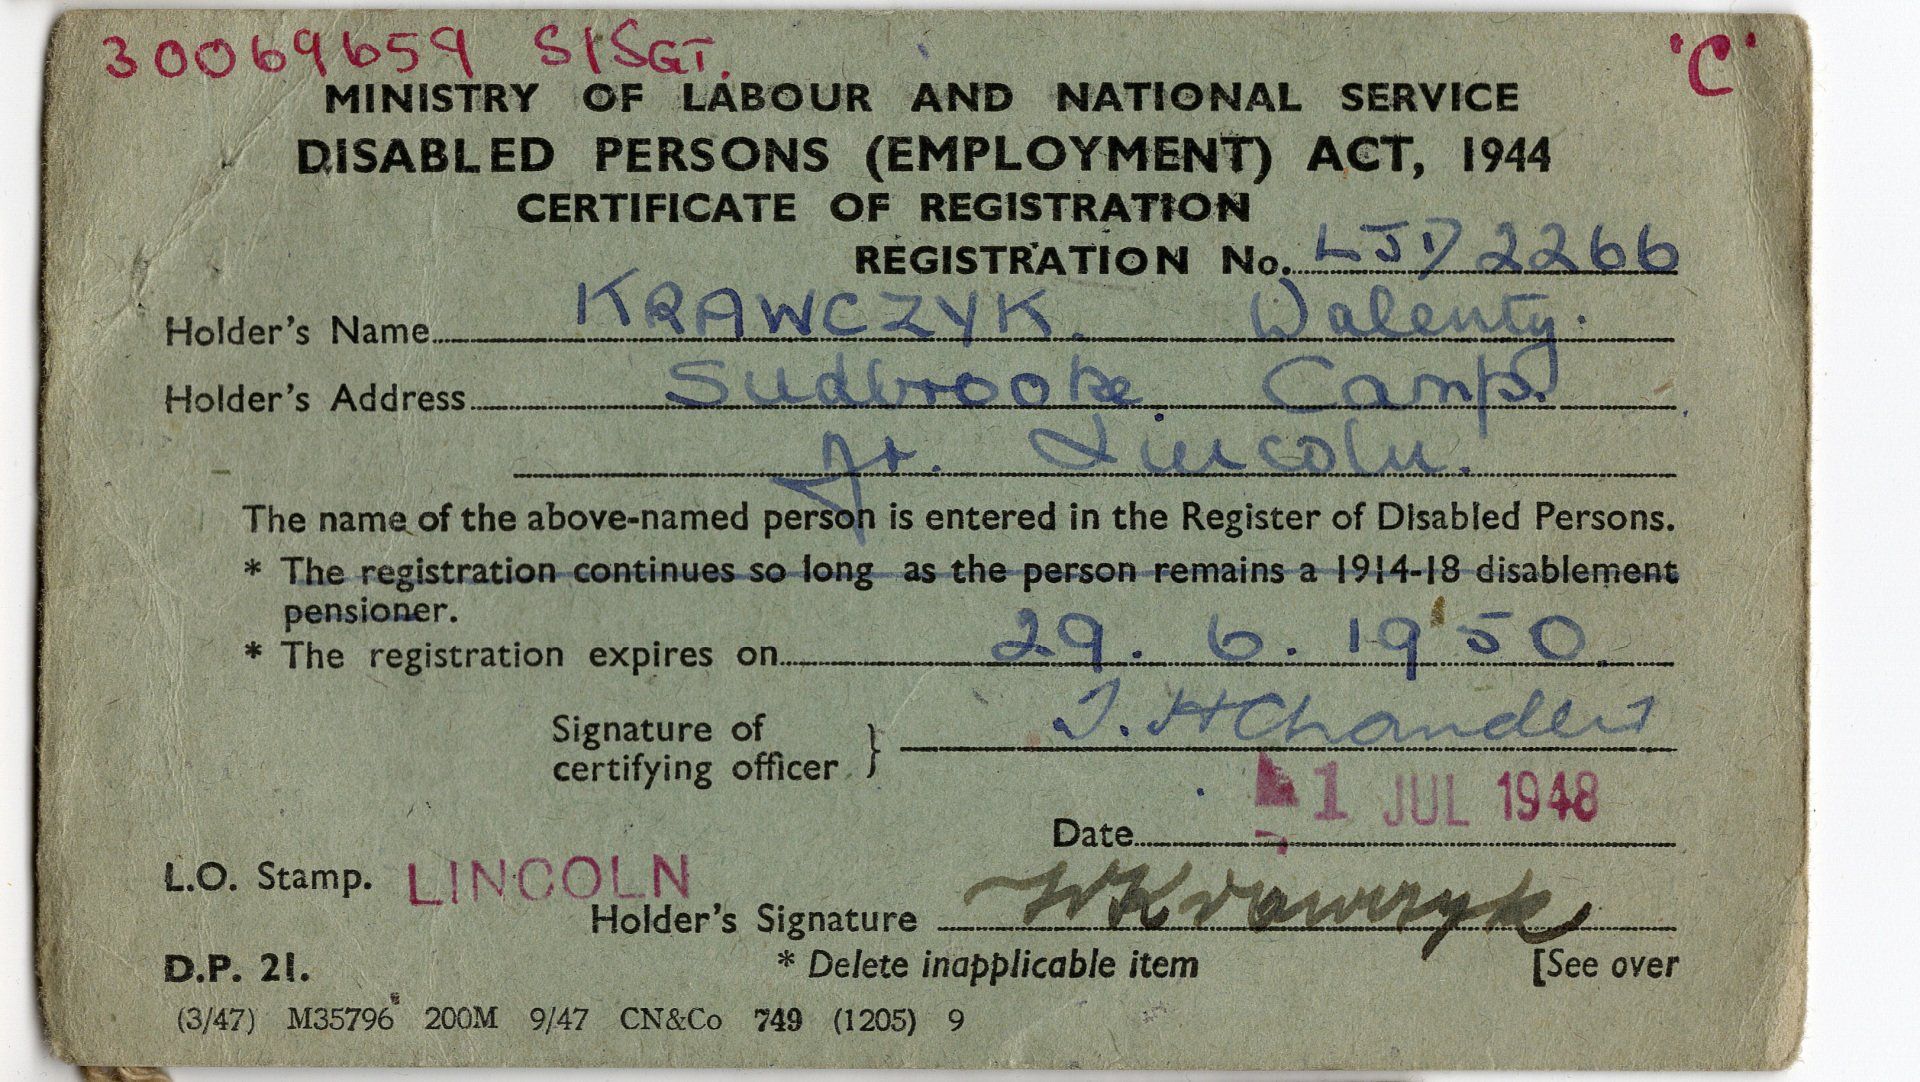 30069659 S/SGT. "C"
MINISTRY OF LABOUR AND NATIONAL SERVICE
DISABLED PERSONS (EMPLOYMENT) ACT, 1944
CERTIFICATE OF REGISTRATION
REGISTRATION No. LJD 2266
Holder's Name KRAWCZYK. Walenty.
Holder's Address Sudbrooke Camp.
Nr. Lincoln.
The name of the above-named person is entered in the Register of Disabled Persons.
* The registration continues so long as the person remains a 1914-18 disablement
pensioner.
* The registration expires on 29. 6. 1950.
Signature of
certifying officer
1 JUL 1948
Date
L.O. Stamp. LINCOLN
Holder's Signature WKrawczyk
D.P. 21. * Delete inapplicable item [See over
(3/47) M35796 200M 9/47 CN&Co 749 (1205) 9